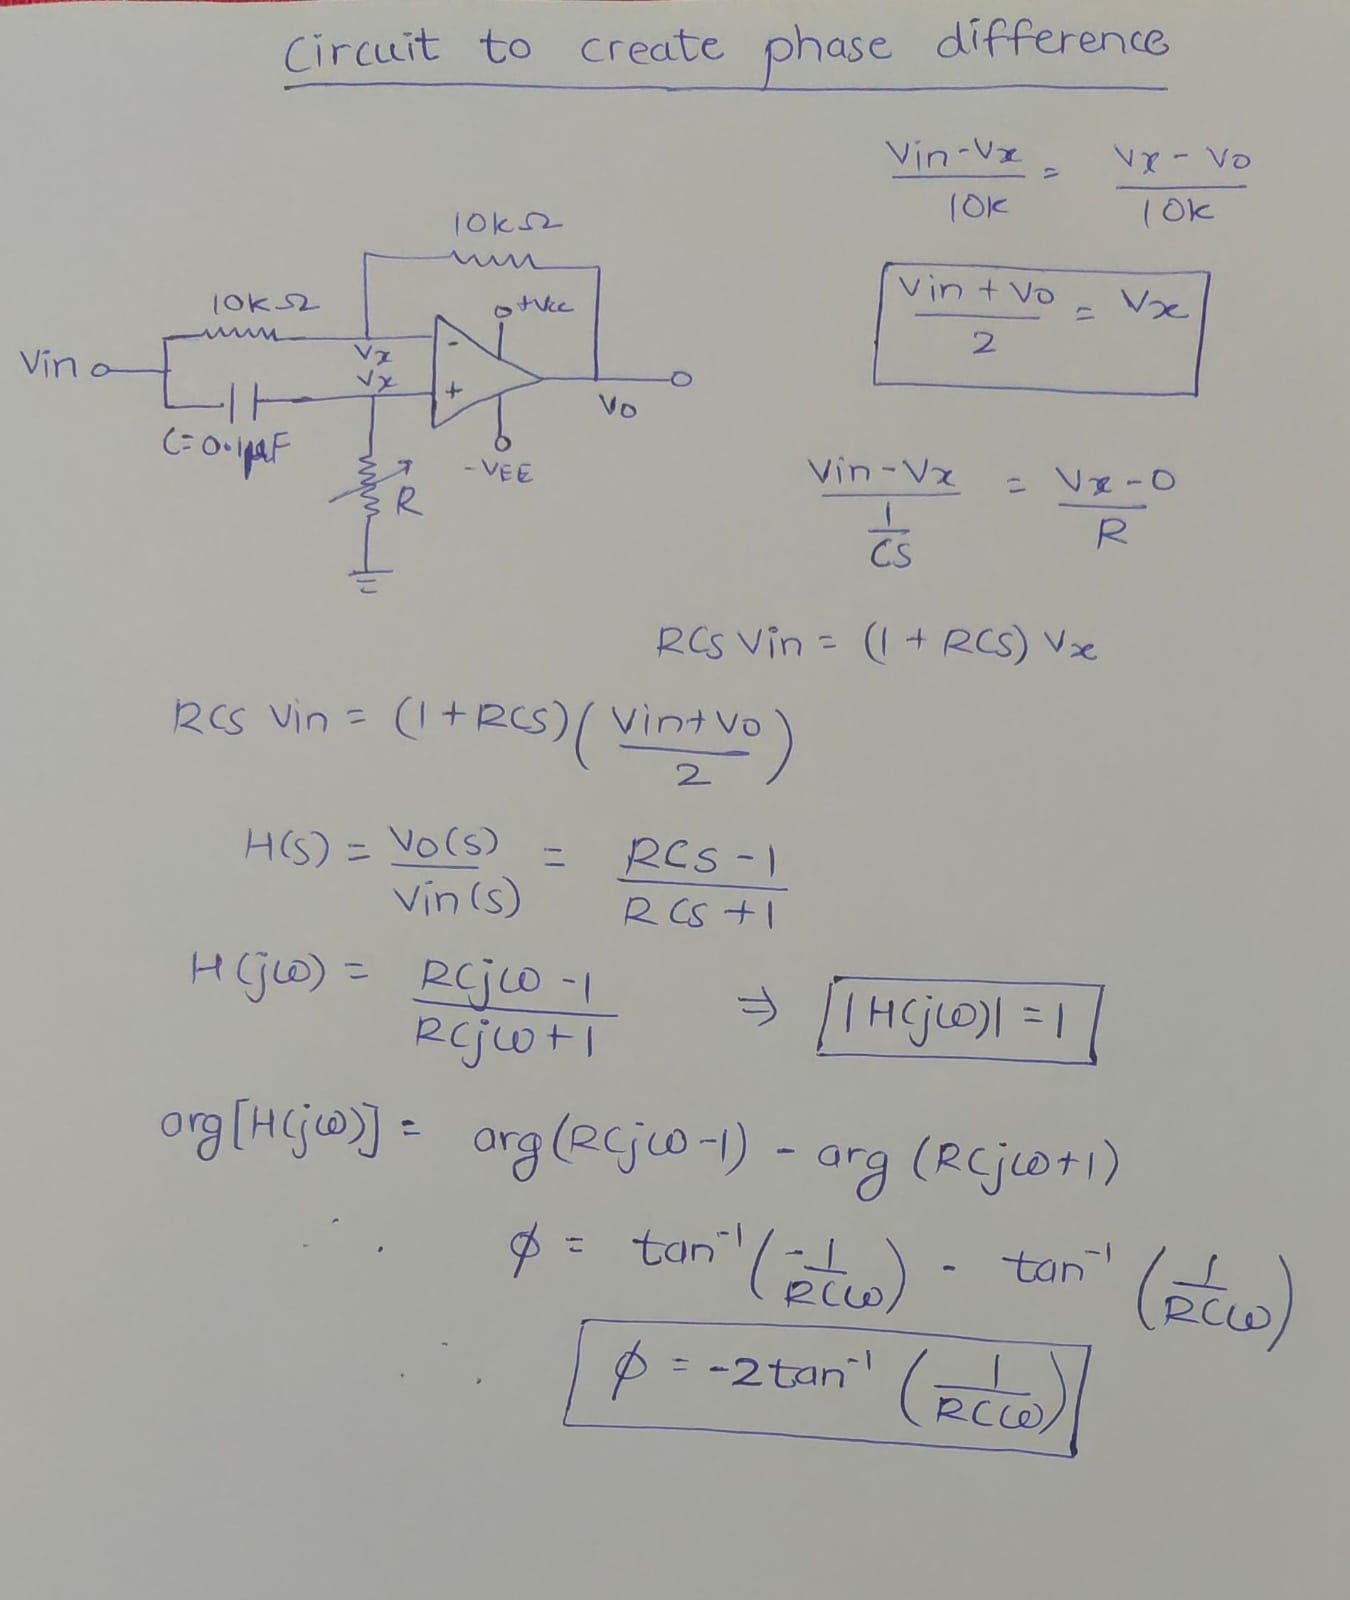 Circuit to create phase difference
Vin-Vx / 10K = Vx-Vo / 10K
Vin+Vo / 2 = Vx
10kΩ
10kΩ
+Vcc
Vin
Vx
Vx
-
+
Vo
C=0.1µF
-VEE
R
Vin-Vx / 1/CS = Vx-0 / R
RCS Vin = (1+RCS) Vx
RCS Vin = (1+RCS)(Vin+Vo / 2)
H(S) = Vo(S) / Vin(S) = RCS-1 / RCS+1
H(jω) = RCjω-1 / RCjω+1 ⇒ |H(jω)| = 1
arg[H(jω)] = arg(RCjω-1) - arg(RCjω+1)
ϕ = tan⁻¹(-1 / RCω) - tan⁻¹(1 / RCω)
ϕ = -2tan⁻¹(1 / RCω)